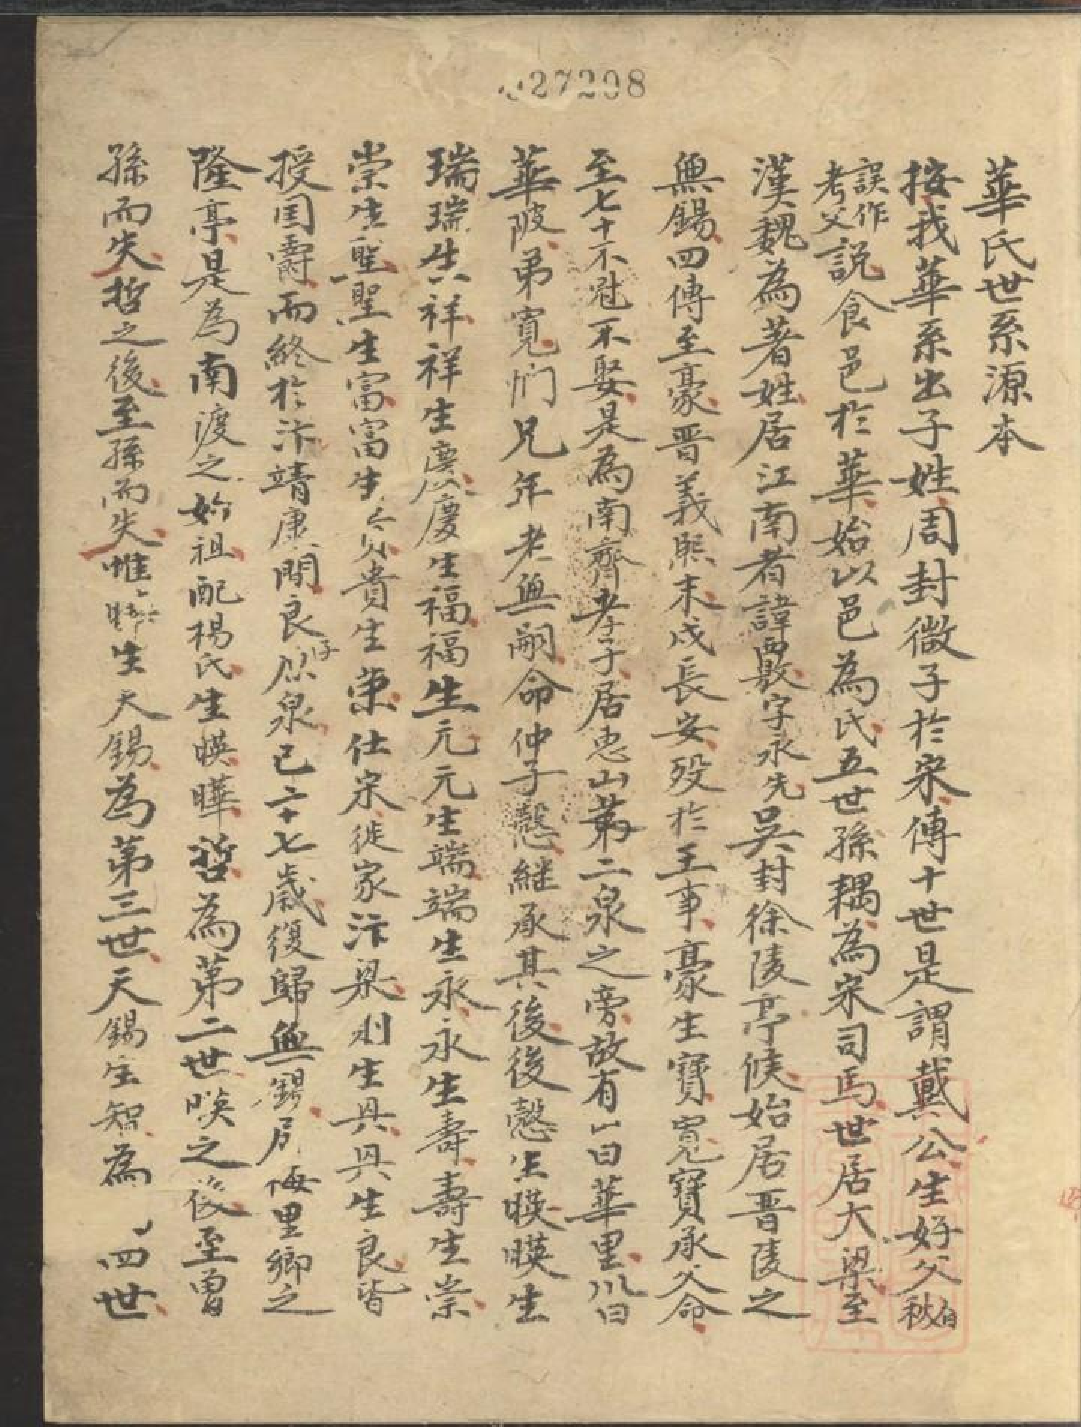 27298
華氏世系源本
按我華系出子姓周封微子於宋傳十世是謂戴公生好父秘白
誤作考父說食邑於華始以邑為氏五世孫耦為宋司馬世居大梁至
漢魏為著姓居江南者諱覈字永先吳封徐陵亭候始居晋陵之
無錫四傳至豪晋義熙末戍長安歿於王事豪生寶寬寶承父命
至七十不冠不娶是為南齊孝子居惠山第二泉之旁故有山曰華里川曰
華陂弟寬們兄年老無嗣命仲子慤継承其後後慤生暎暎生
瑞瑞生祥祥生慶慶生福福生元元生端端生永永生壽壽生崇
崇生聖聖生富富生貴貴生榮仕宋徙家汴梁利生具具生良皆
授囯壽而終於汴靖康間良原泉已六十七歲復歸無錫居梅里鄉之
隆亭是為南渡之始祖配楊氏生暎曄哲為第二世暎之後至曾
孫而失哲之後至孫而失惟曄生天錫為第三世天錫生智為四世